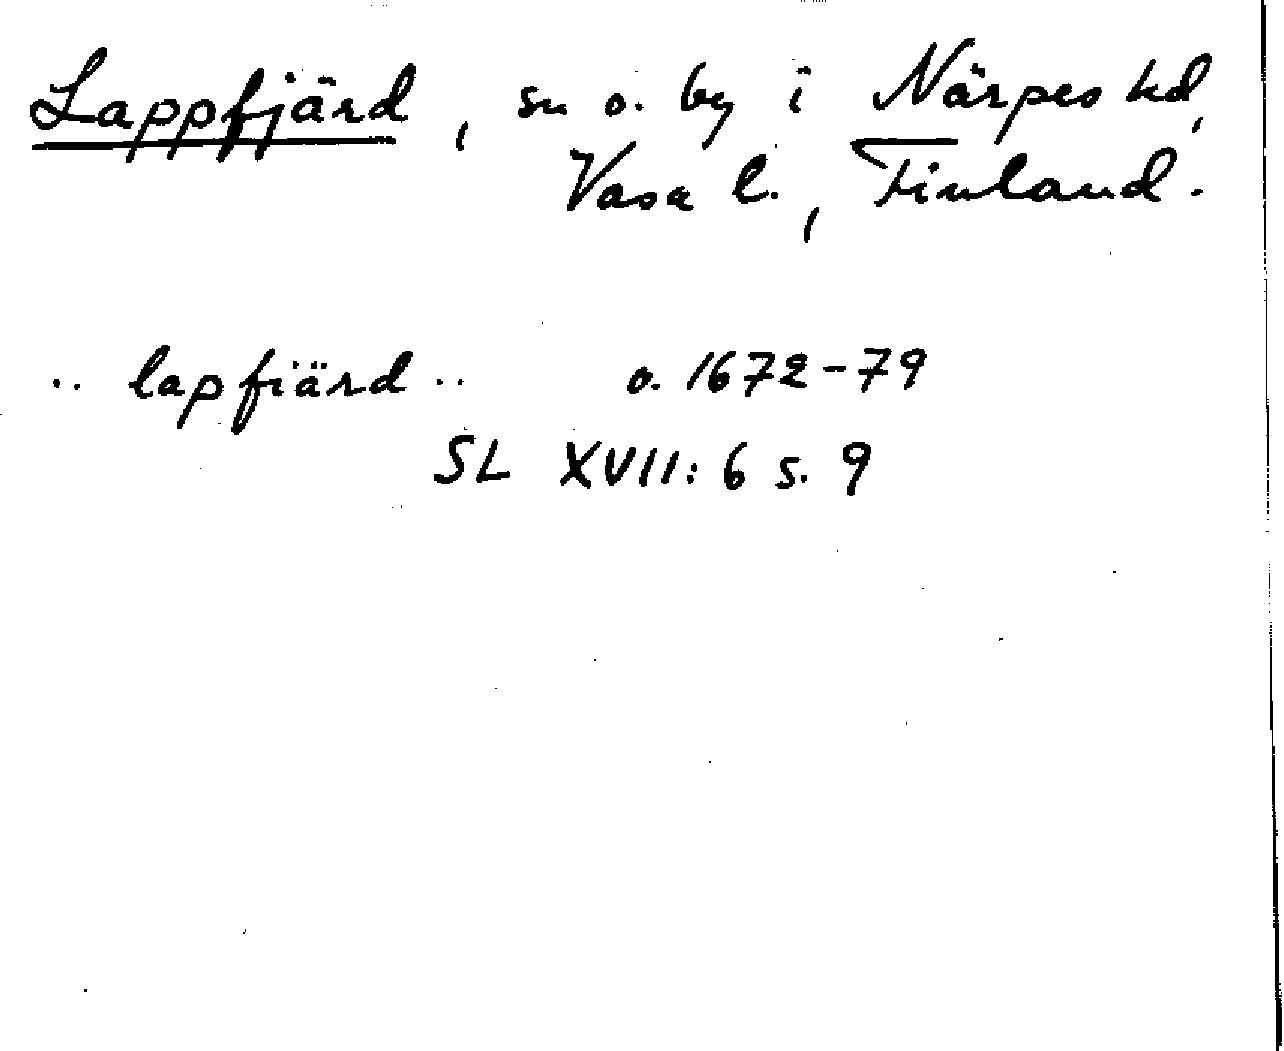 Lappfjärd, sn o. by i Närpes hd,
Vasa l., Finland.
.. lapfiärd .. o. 1672-79
SL XVII: 6 s. 9